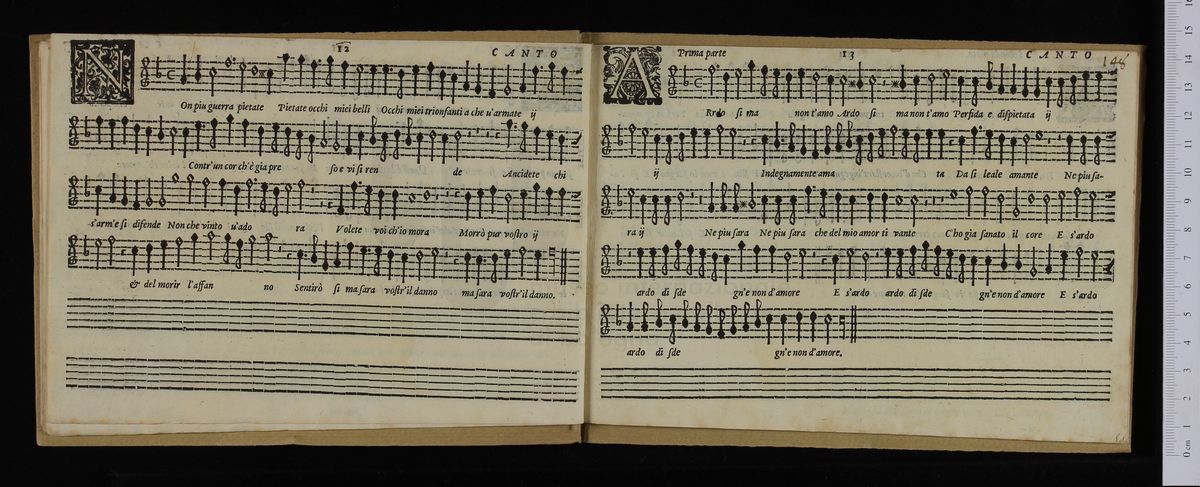 12
CANTO
N
On piu guerra pietate Pietate occhi miei belli Occhi miei trionfanti a che u'armate ij
Contr'un cor ch'è gia pre so e vi si ren de Ancidete chi
s'arm'e si difende Non che vinto u'ado ra Volete voi ch'io mora Morrò pur vostro ij
& del morir l'affan no Sentirò si ma sara vostr'il danno ma sara vostr'il danno.
Prima parte
13
CANTO
148
A
Rdo si ma non t'amo Ardo si ma non t'amo Perfida e dispietata ij
ij Indegnamente ama ta Da si leale amante Ne piu sa-
ra ij Ne piu sara Ne piu sara che del mio amor ti vante C'ho gia sanato il core E s'ardo
ardo di sde gn'e non d'amore E s'ardo ardo di sde gn'e non d'amore E s'ardo
ardo di sde gn'e non d'amore.
0 cm 1 2 3 4 5 6 7 8 9 10 11 12 13 14 15 16